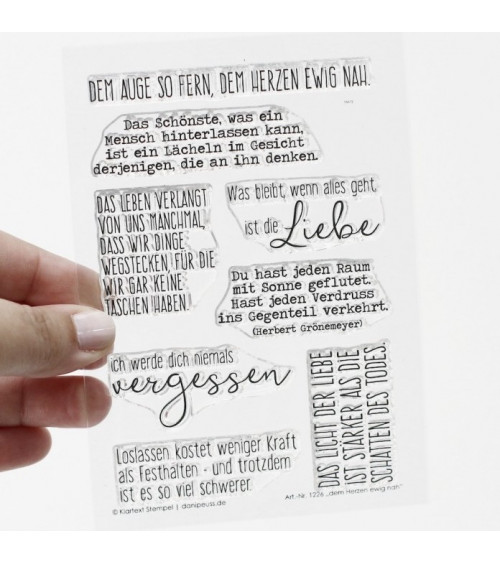 DEM AUGE SO FERN, DEM HERZEN EWIG NAH.
Das Schönste, was ein
Mensch hinterlassen kann,
ist ein Lächeln im Gesicht
derjenigen, die an ihn denken.
DAS LEBEN VERLANGT
VON UNS MANCHMAL,
DASS WIR DINGE
WEGSTECKEN, FÜR DIE
WIR GAR KEINE
TASCHEN HABEN.
Was bleibt, wenn alles geht,
ist die Liebe
Du hast jeden Raum
mit Sonne geflutet.
Hast jeden Verdruss
ins Gegenteil verkehrt.
(Herbert Grönemeyer)
ich werde dich niemals
vergessen
DAS LICHT DER LIEBE
IST STÄRKER ALS DIE
SCHATTEN DES TODES.
Loslassen kostet weniger Kraft
als Festhalten - und trotzdem
ist es so viel schwerer.
© Klartext Stempel | danipeuss.de
Art.-Nr. 1226 „dem Herzen ewig nah"